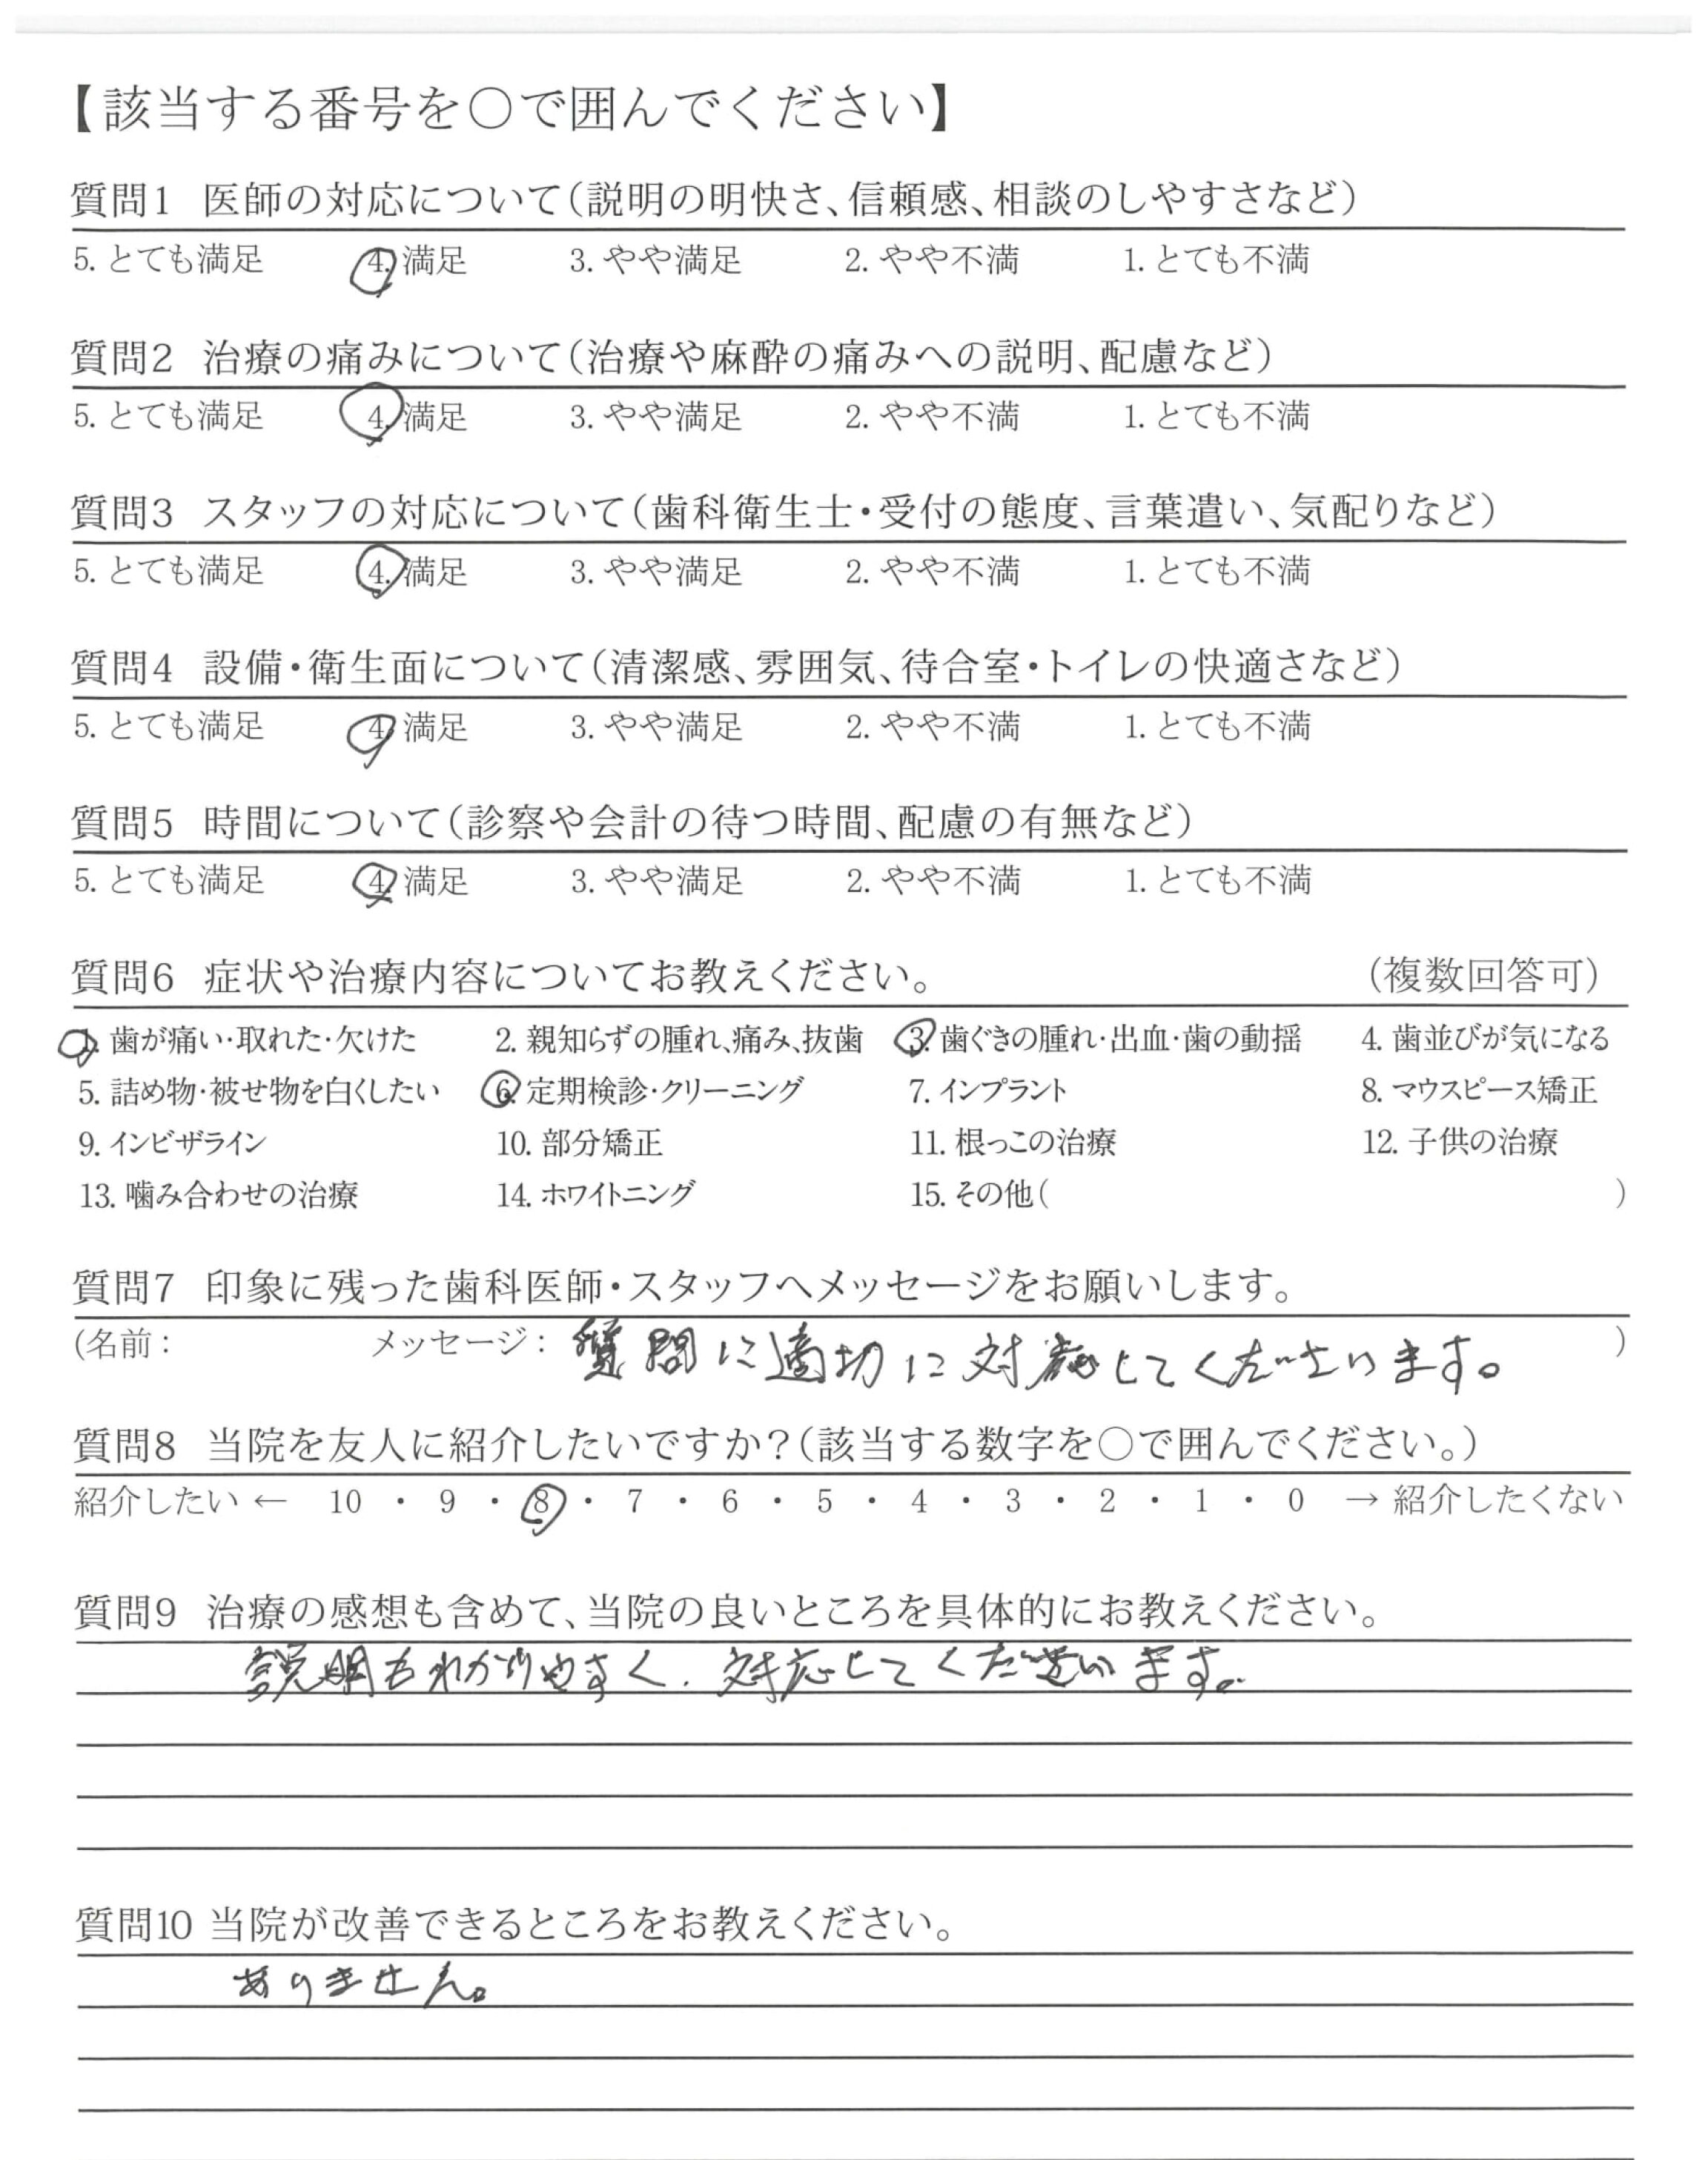 【該当する番号を○で囲んでください】
質問1 医師の対応について(説明の明快さ、信頼感、相談のしやすさなど)
5. とても満足 4. 満足 3. やや満足 2. やや不満 1. とても不満
質問2 治療の痛みについて(治療や麻酔の痛みへの説明、配慮など)
5. とても満足 4. 満足 3. やや満足 2. やや不満 1. とても不満
質問3 スタッフの対応について(歯科衛生士・受付の態度、言葉遣い、気配りなど)
5. とても満足 4. 満足 3. やや満足 2. やや不満 1. とても不満
質問4 設備・衛生面について(清潔感、雰囲気、待合室・トイレの快適さなど)
5. とても満足 4. 満足 3. やや満足 2. やや不満 1. とても不満
質問5 時間について(診察や会計の待つ時間、配慮の有無など)
5. とても満足 4. 満足 3. やや満足 2. やや不満 1. とても不満
質問6 症状や治療内容についてお教えください。 (複数回答可)
1. 歯が痛い・取れた・欠けた 2. 親知らずの腫れ、痛み、抜歯 3. 歯ぐきの腫れ・出血・歯の動揺 4. 歯並びが気になる
5. 詰め物・被せ物を白くしたい 6. 定期検診・クリーニング 7. インプラント 8. マウスピース矯正
9. インビザライン 10. 部分矯正 11. 根っこの治療 12. 子供の治療
13. 噛み合わせの治療 14. ホワイトニング 15. その他( )
質問7 印象に残った歯科医師・スタッフへメッセージをお願いします。
(名前: メッセージ: 質問に適切に対応してくださいます。 )
質問8 当院を友人に紹介したいですか?(該当する数字を○で囲んでください。)
紹介したい ← 10 ・ 9 ・ 8 ・ 7 ・ 6 ・ 5 ・ 4 ・ 3 ・ 2 ・ 1 ・ 0 → 紹介したくない
質問9 治療の感想も含めて、当院の良いところを具体的にお教えください。
説明もわかりやすく、対応してくださいます。
質問10 当院が改善できるところをお教えください。
ありません。